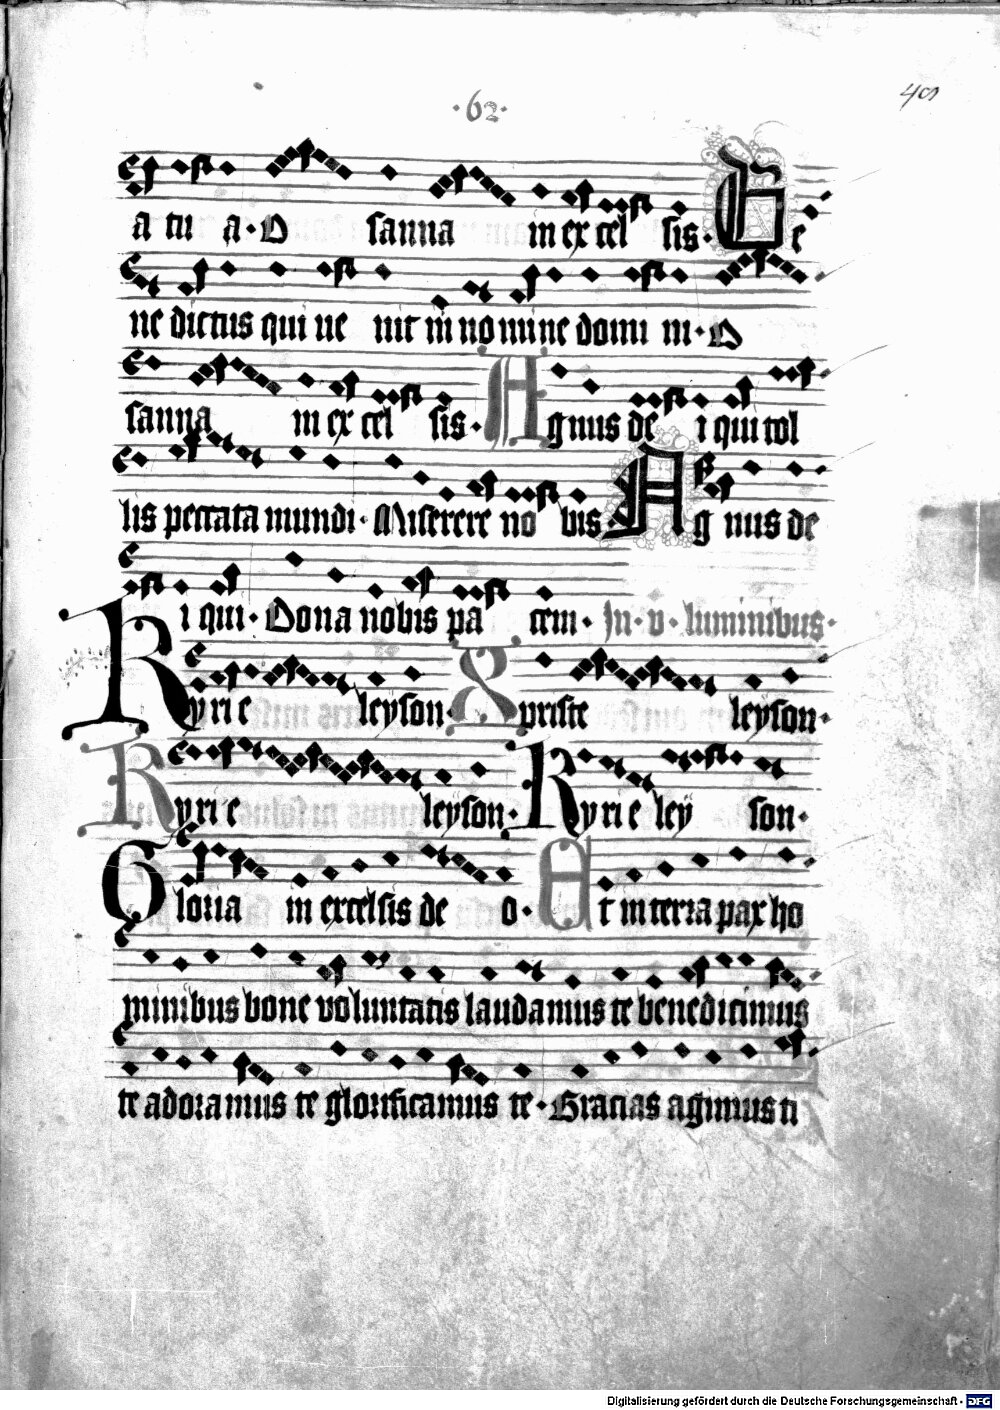 ·62·
409
a tu a· O sanna in ex cel sis· Be
ne dictus qui ue nit in no mine domi ni· O
sanna in ex cel sis· Agnus de i qui tol
lis peccata mundi· Miserere no bis· Ag nus de
i qui· Dona nobis pa cem· In· v· luminibus·
Kyri e leyson· Xpriste leyson·
Kyri e leyson· Kyri e ley son·
Gloria in excelsis de o· Et in terra pax ho
minibus bone voluntatis laudamus te benedicimus
te adoramus te glorificamus te· Gracias agimus ti
Digitalisierung gefördert durch die Deutsche Forschungsgemeinschaft - DFG